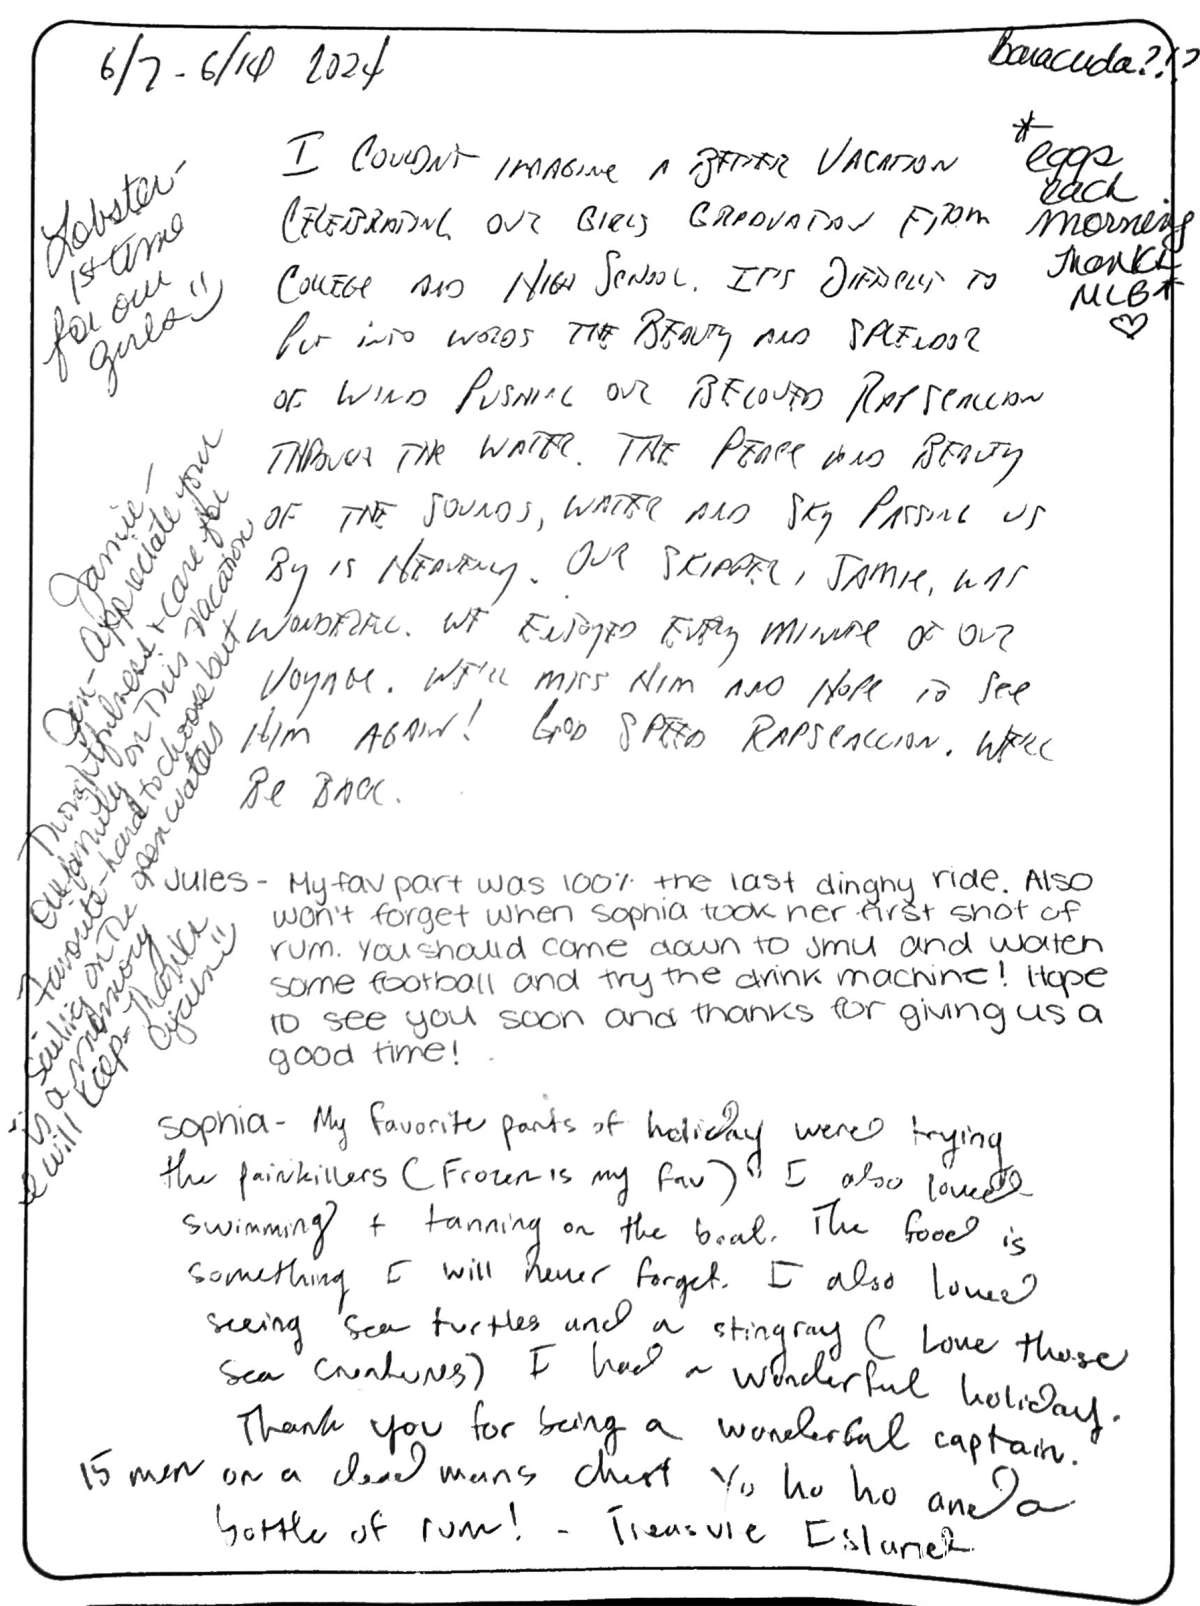 6/7 - 6/14 2024
Baracuda?!?
*
eggs
each
morning
Thanks
MLB*
♡
Lobster-
1st time
for our
girls :)
I COULDNT IMAGINE A BETTER VACATION
CELEBRATING OUR GIRLS GRADUATION FROM
COLLEGE AND HIGH SCHOOL. IT'S DIFFICULT TO
PUT INTO WORDS THE BEAUTY AND SPLENDOR
OF WIND PUSHING OUR BELOVED RAPSCALLION
THROUGH THE WATER. THE PEACE AND BEAUTY
OF THE SOUNDS, WATER AND SKY PASSING US
BY IS HEAVENLY. OUR SKIPPER, JAMIE, WAS
WONDERFUL. WE ENJOYED EVERY MINUTE OF OUR
VOYAGE. WE'LL MISS HIM AND HOPE TO SEE
HIM AGAIN! GOD SPEED RAPSCALLION. WE'LL
BE BACK.
Jamie-
Jen - Appreciate your
Thoughtfulness + care for
our family on this vacation
Favorite - hard to choose but
sailing on the open waters
is a memory
I will keep - Thanks
again :)
Jules - My fav part was 100% the last dinghy ride. Also
won't forget when Sophia took her first shot of
rum. You should come down to JMU and watch
some football and try the drink machine! Hope
to see you soon and thanks for giving us a
good time!
Sophia - My favorite parts of holiday were trying
the painkillers (Frozen is my fav) I also loved
swimming + tanning on the boat. The food is
something I will never forget. I also loved
seeing sea turtles and a stingray (Love those
sea creatures) I had a wonderful holiday.
Thank you for being a wonderful captain.
15 men on a dead mans chest Yo ho ho and a
bottle of rum! - Treasure Island